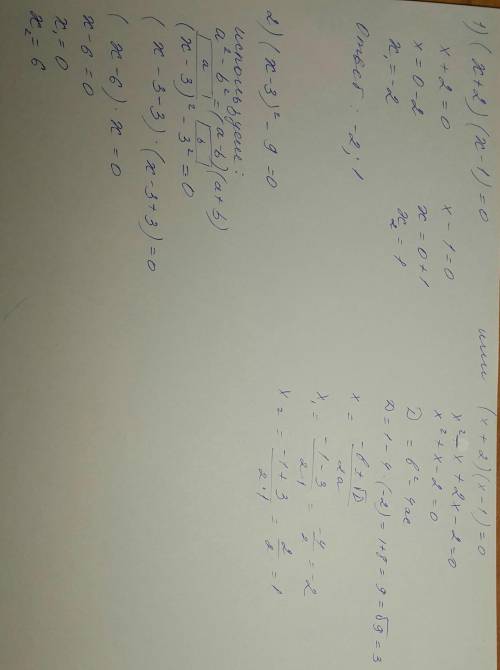 1) (x+2)(x-1)=0
x+2=0
x=0-2
x₁=-2
x-1=0
x=0+1
x₂=1
Ответ: -2; 1
или
(x+2)(x-1)=0
x²-x+2x-2=0
x²+x-2=0
D=b²-4ac
D=1-4·(-2)=1+8=9=√9=3
x=(-b±√D)/2a
x₁=(-1-3)/(2·1)=-4/2=-2
x₂=(-1+3)/(2·1)=2/2=1
2) (x-3)²-9=0
используем:
a²-b²=(a-b)(a+b)
a b
(x-3)²-3²=0
(x-3-3)·(x-3+3)=0
(x-6)·x=0
x-6=0
x₁=0
x₂=6